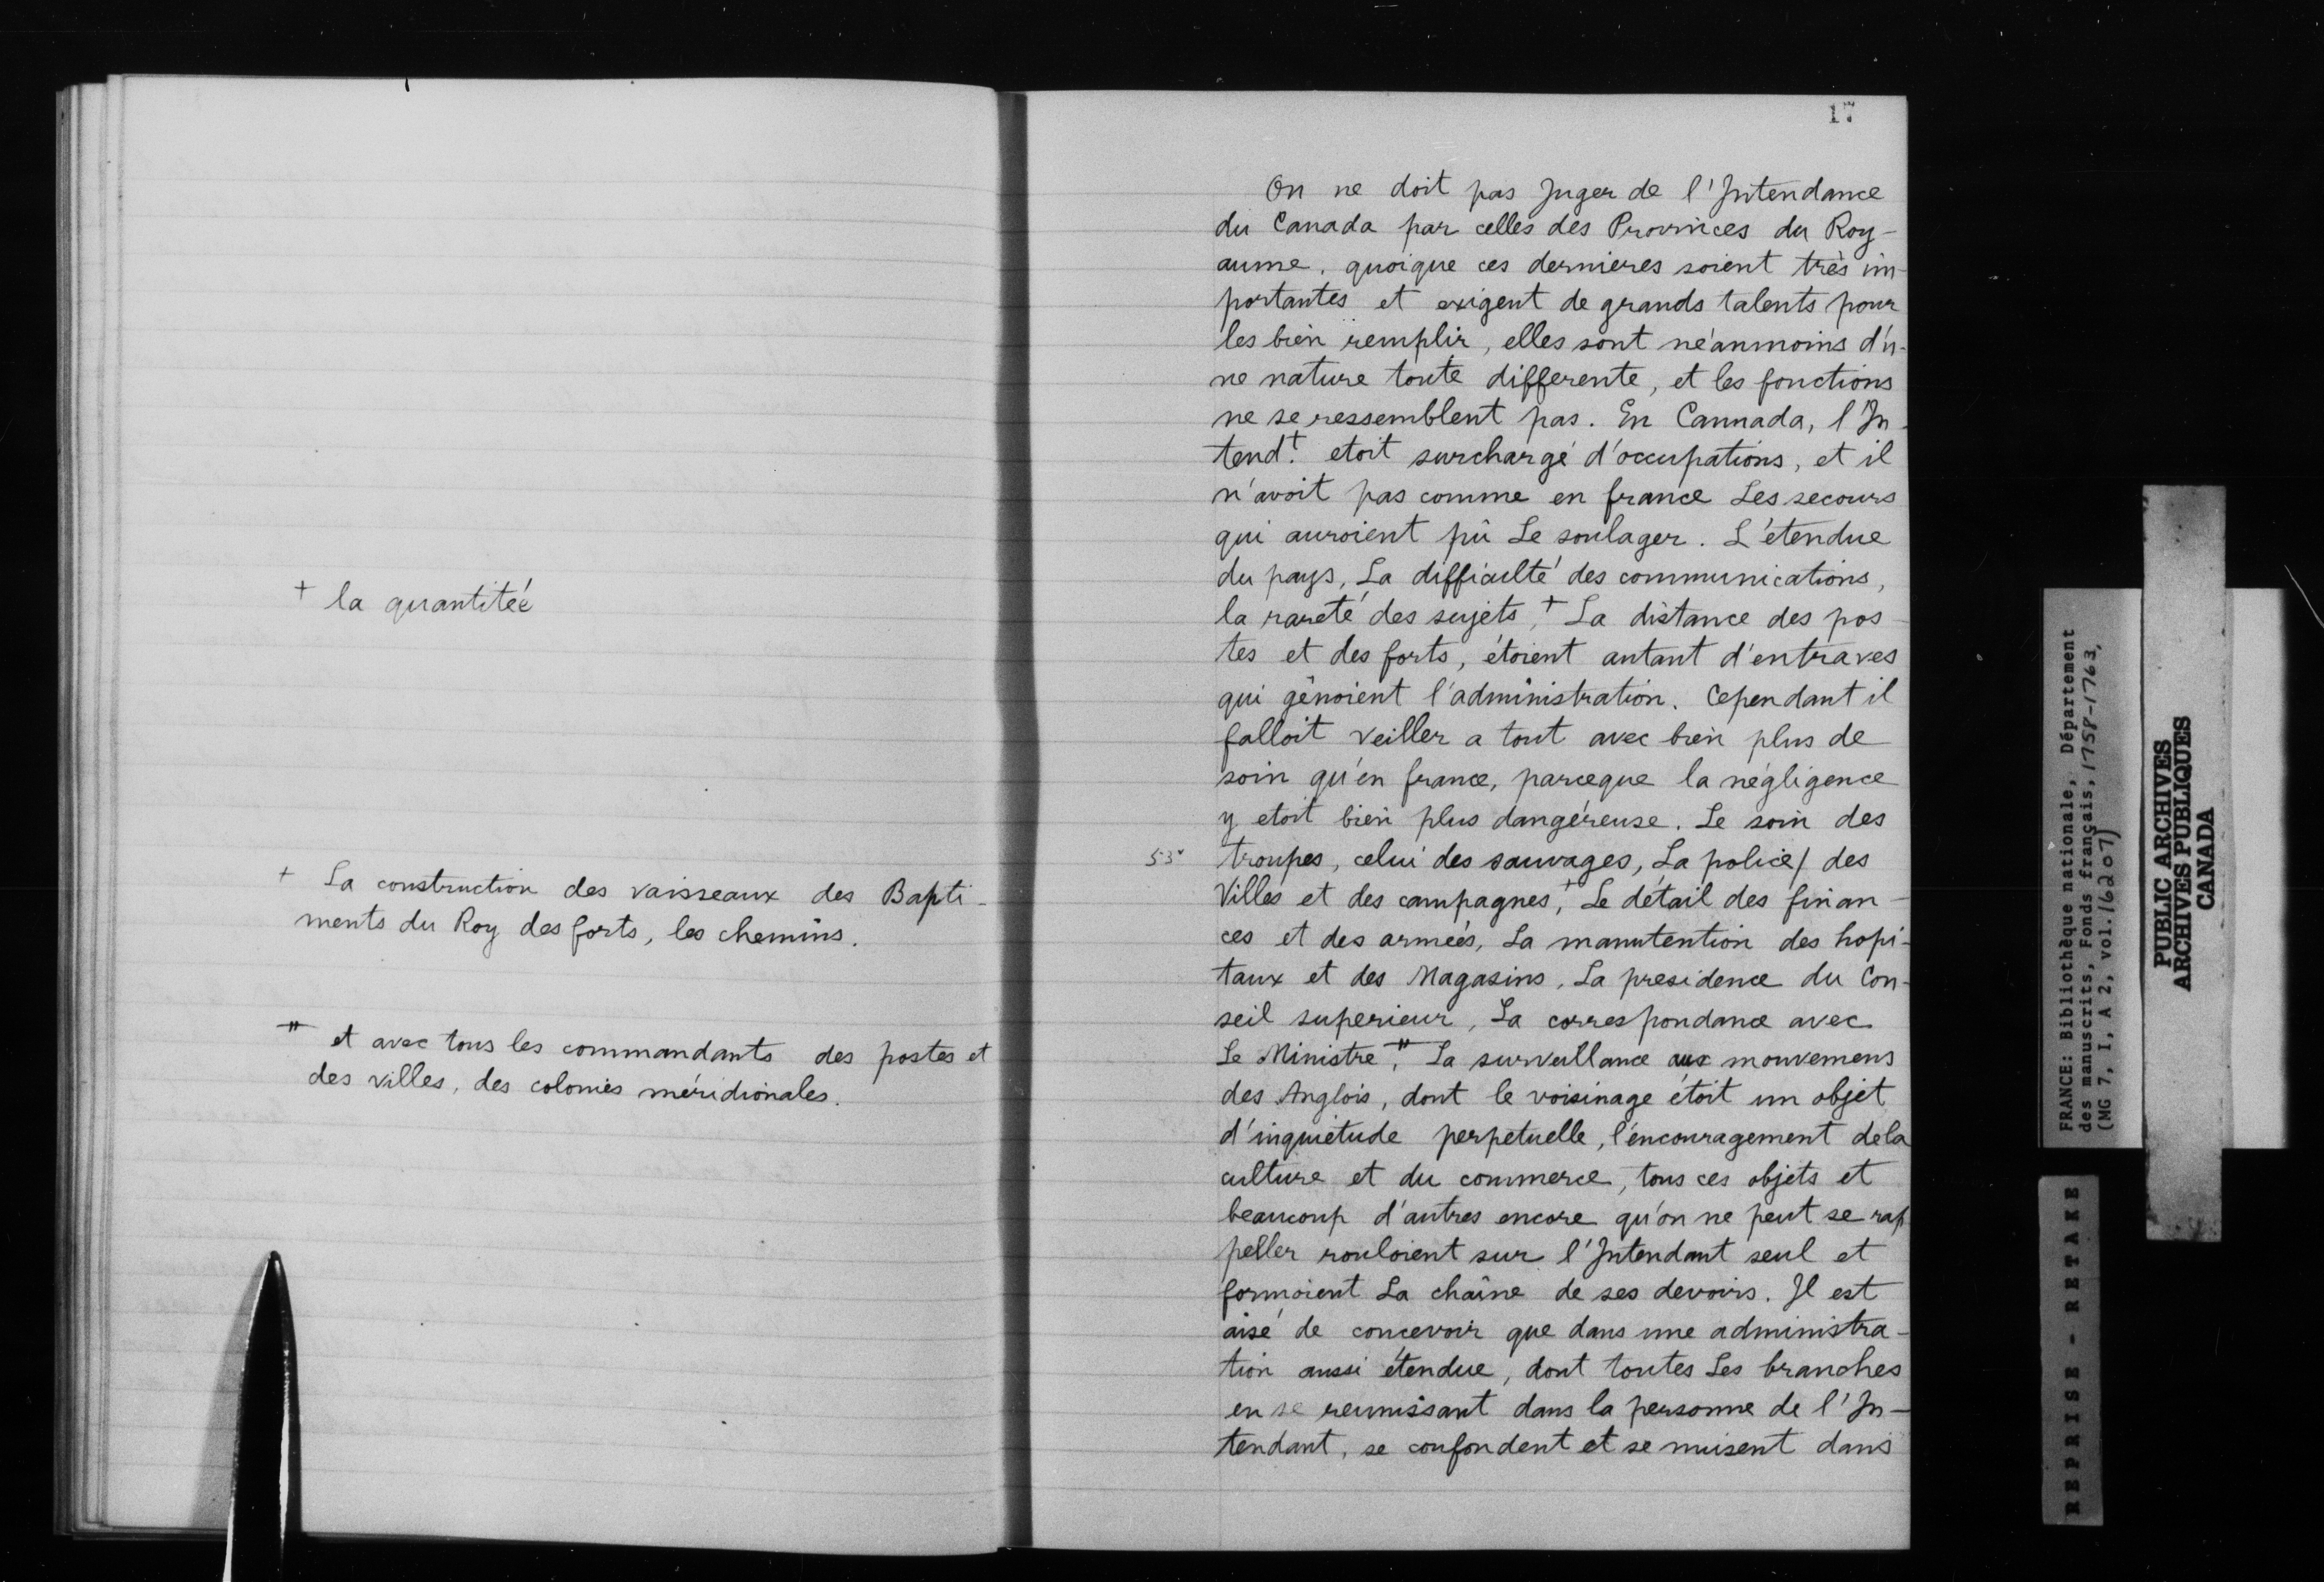 + la quantitée
+ La construction des vaisseaux des Bapti-
ments du Roy des forts, les chemins.
⧺ et avec tous les commandants des postes et
des villes, des colonies méridionales.
17
On ne doit pas Juger de l'Intendance
du Canada par celles des Provinces du Roy-
aume. quoique ces dernieres soient très im-
portantes et exigent de grands talents pour
les bien remplir, elles sont néanmoins d'u-
ne nature toute differente, et les fonctions
ne se ressemblent pas. En Cannada, l'In-
tendt. etoit surchargé d'occupations, et il
n'avoit pas comme en france Les secours
qui auroient pû Le soulager. L'étendue
du pays, La difficulté des communications,
la rareté des sujets, + La distance des pos-
tes et des forts, étoient autant d'entraves
qui gênoient l'administration. Cependant il
falloit veiller a tout avec bien plus de
soin qu'en france, parceque la négligence
y etoit bien plus dangéreuse. Le soin des
53v troupes, celui des sauvages, La police/ des
Villes et des campagnes, + Le détail des finan-
ces et des armeés, La manutention des hopi-
taux et des Magasins, La presidence du Con-
seil superieur, La correspondance avec
Le Ministre, ⧺ La surveillance aux mouvemens
des Anglois, dont le voisinage étoit un objet
d'inquietude perpetuelle, l'éncouragement dela
culture et du commerce, tous ces objets et
beaucoup d'autres encore qu'on ne peut se rap
peller rouloient sur l'Intendant seul et
formoient La chaîne de ses devoirs. Il est
aisé de concevoir que dans une administra-
tion aussi étendue, dont toutes Les branches
en se reunissant dans la personne de l'In-
tendant, se confondent et se nuisent dans
FRANCE: Bibliothèque nationale, Département
des manuscrits, Fonds français, 1758-1763,
(MG 7, I, A 2, vol. 16207)
PUBLIC ARCHIVES
ARCHIVES PUBLIQUES
CANADA
REPRISE - RETAKE